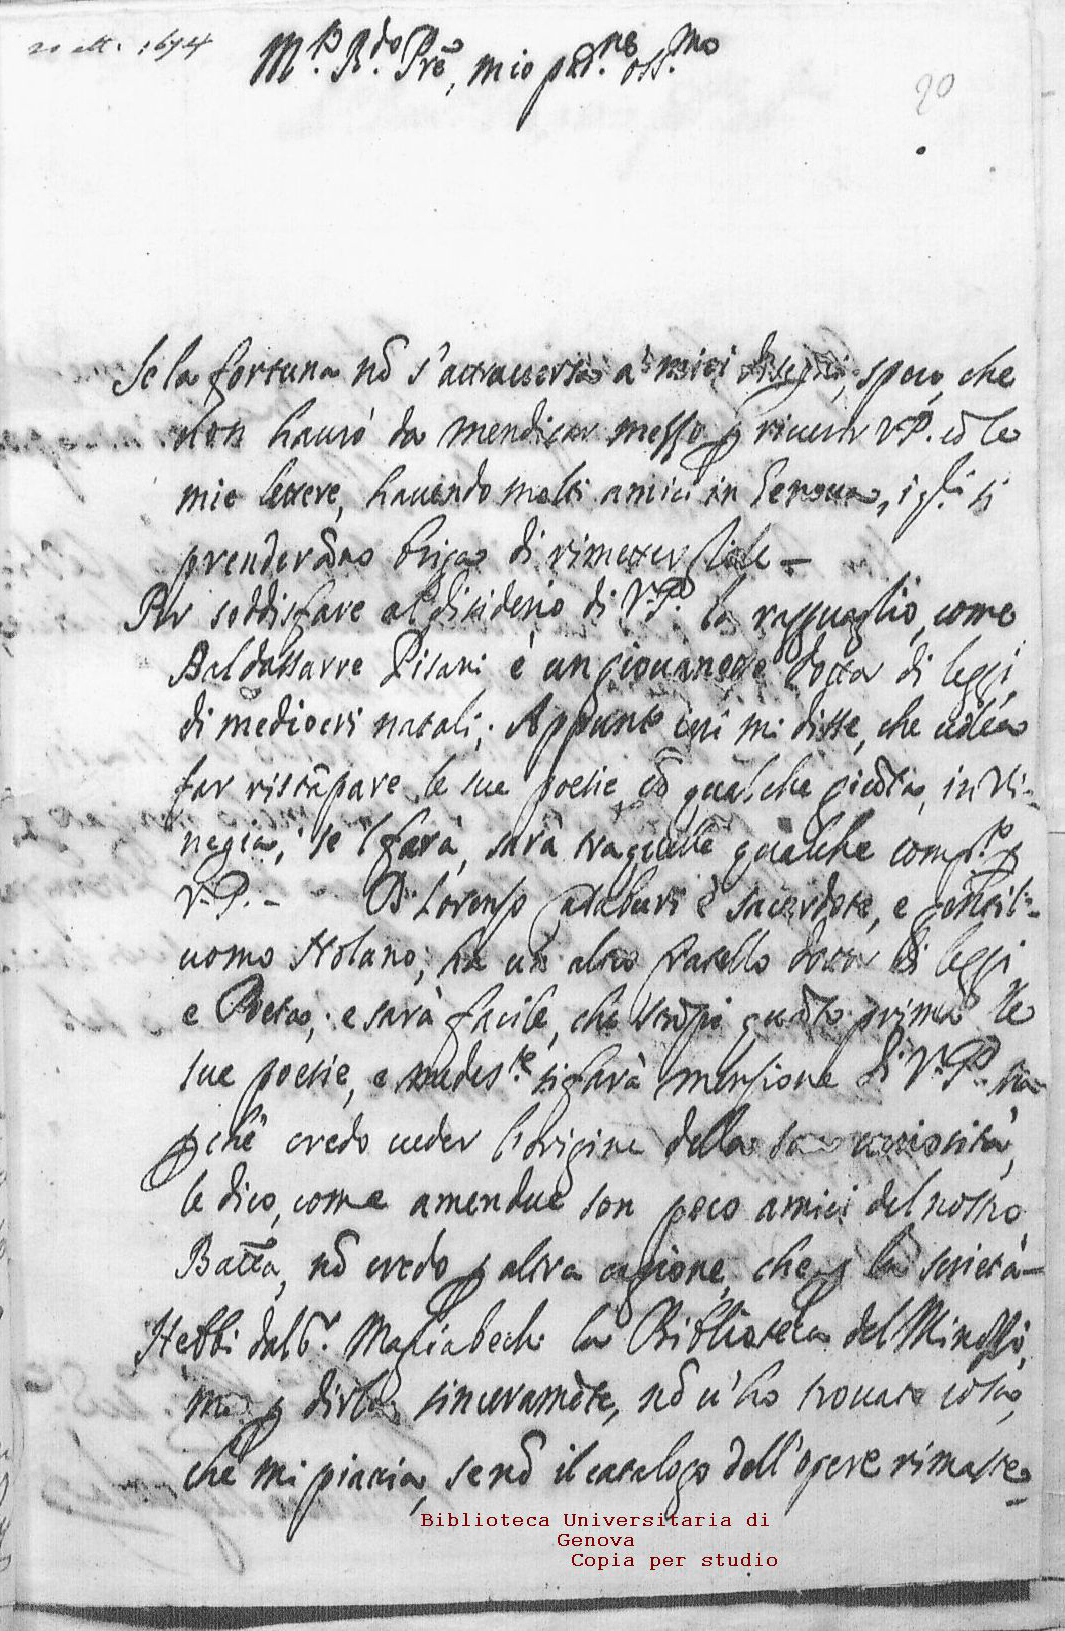 20 ott. 1674
M. R.do Pre, mio pad.ne oss.mo
90
Se la fortuna nõ s'attraversa a' miei disegni, spero, che
non haurò da mendicar messo p riverir V.P. cõ le
mie lettere, havendo molti amici in Genova, i q.li si
prenderãno briga di rimettergliele -
Per soddisfare al disiderio di V.P. la ragguaglio, come
Baldassarre Pisani è un giovanetto dottor di leggi,
di mediocri natali; Appunto mi disse, che volea
far ristãpare le sue poesie, cõ qualche giũta, in Vi-
negia; se 'l farà, sarà tra quelle qualche comp. p
V.P. - D. Lorenzo Cataburi è sacerdote, e gentil-
uomo Nolano; ha un altro fratello dottor di leggi,
e Poeta; e sarà facile, che stãpi quãto prima le
sue poesie, e si farà menzione di V.P. ma
pchè credo veder l'origine della sua curiosità,
le dico, come amendue son poco amici del nostro
Batta, nõ credo p altra cagione, che p la serietà -
Hebbi dal S.r Magliabechi la Biblioteca del Minozzi,
ma p dirla sinceramẽte, nõ v'ho trovata cosa,
che mi piaccia, se nõ il catalogo dell'opere rimaste
Biblioteca Universitaria di
Genova
Copia per studio